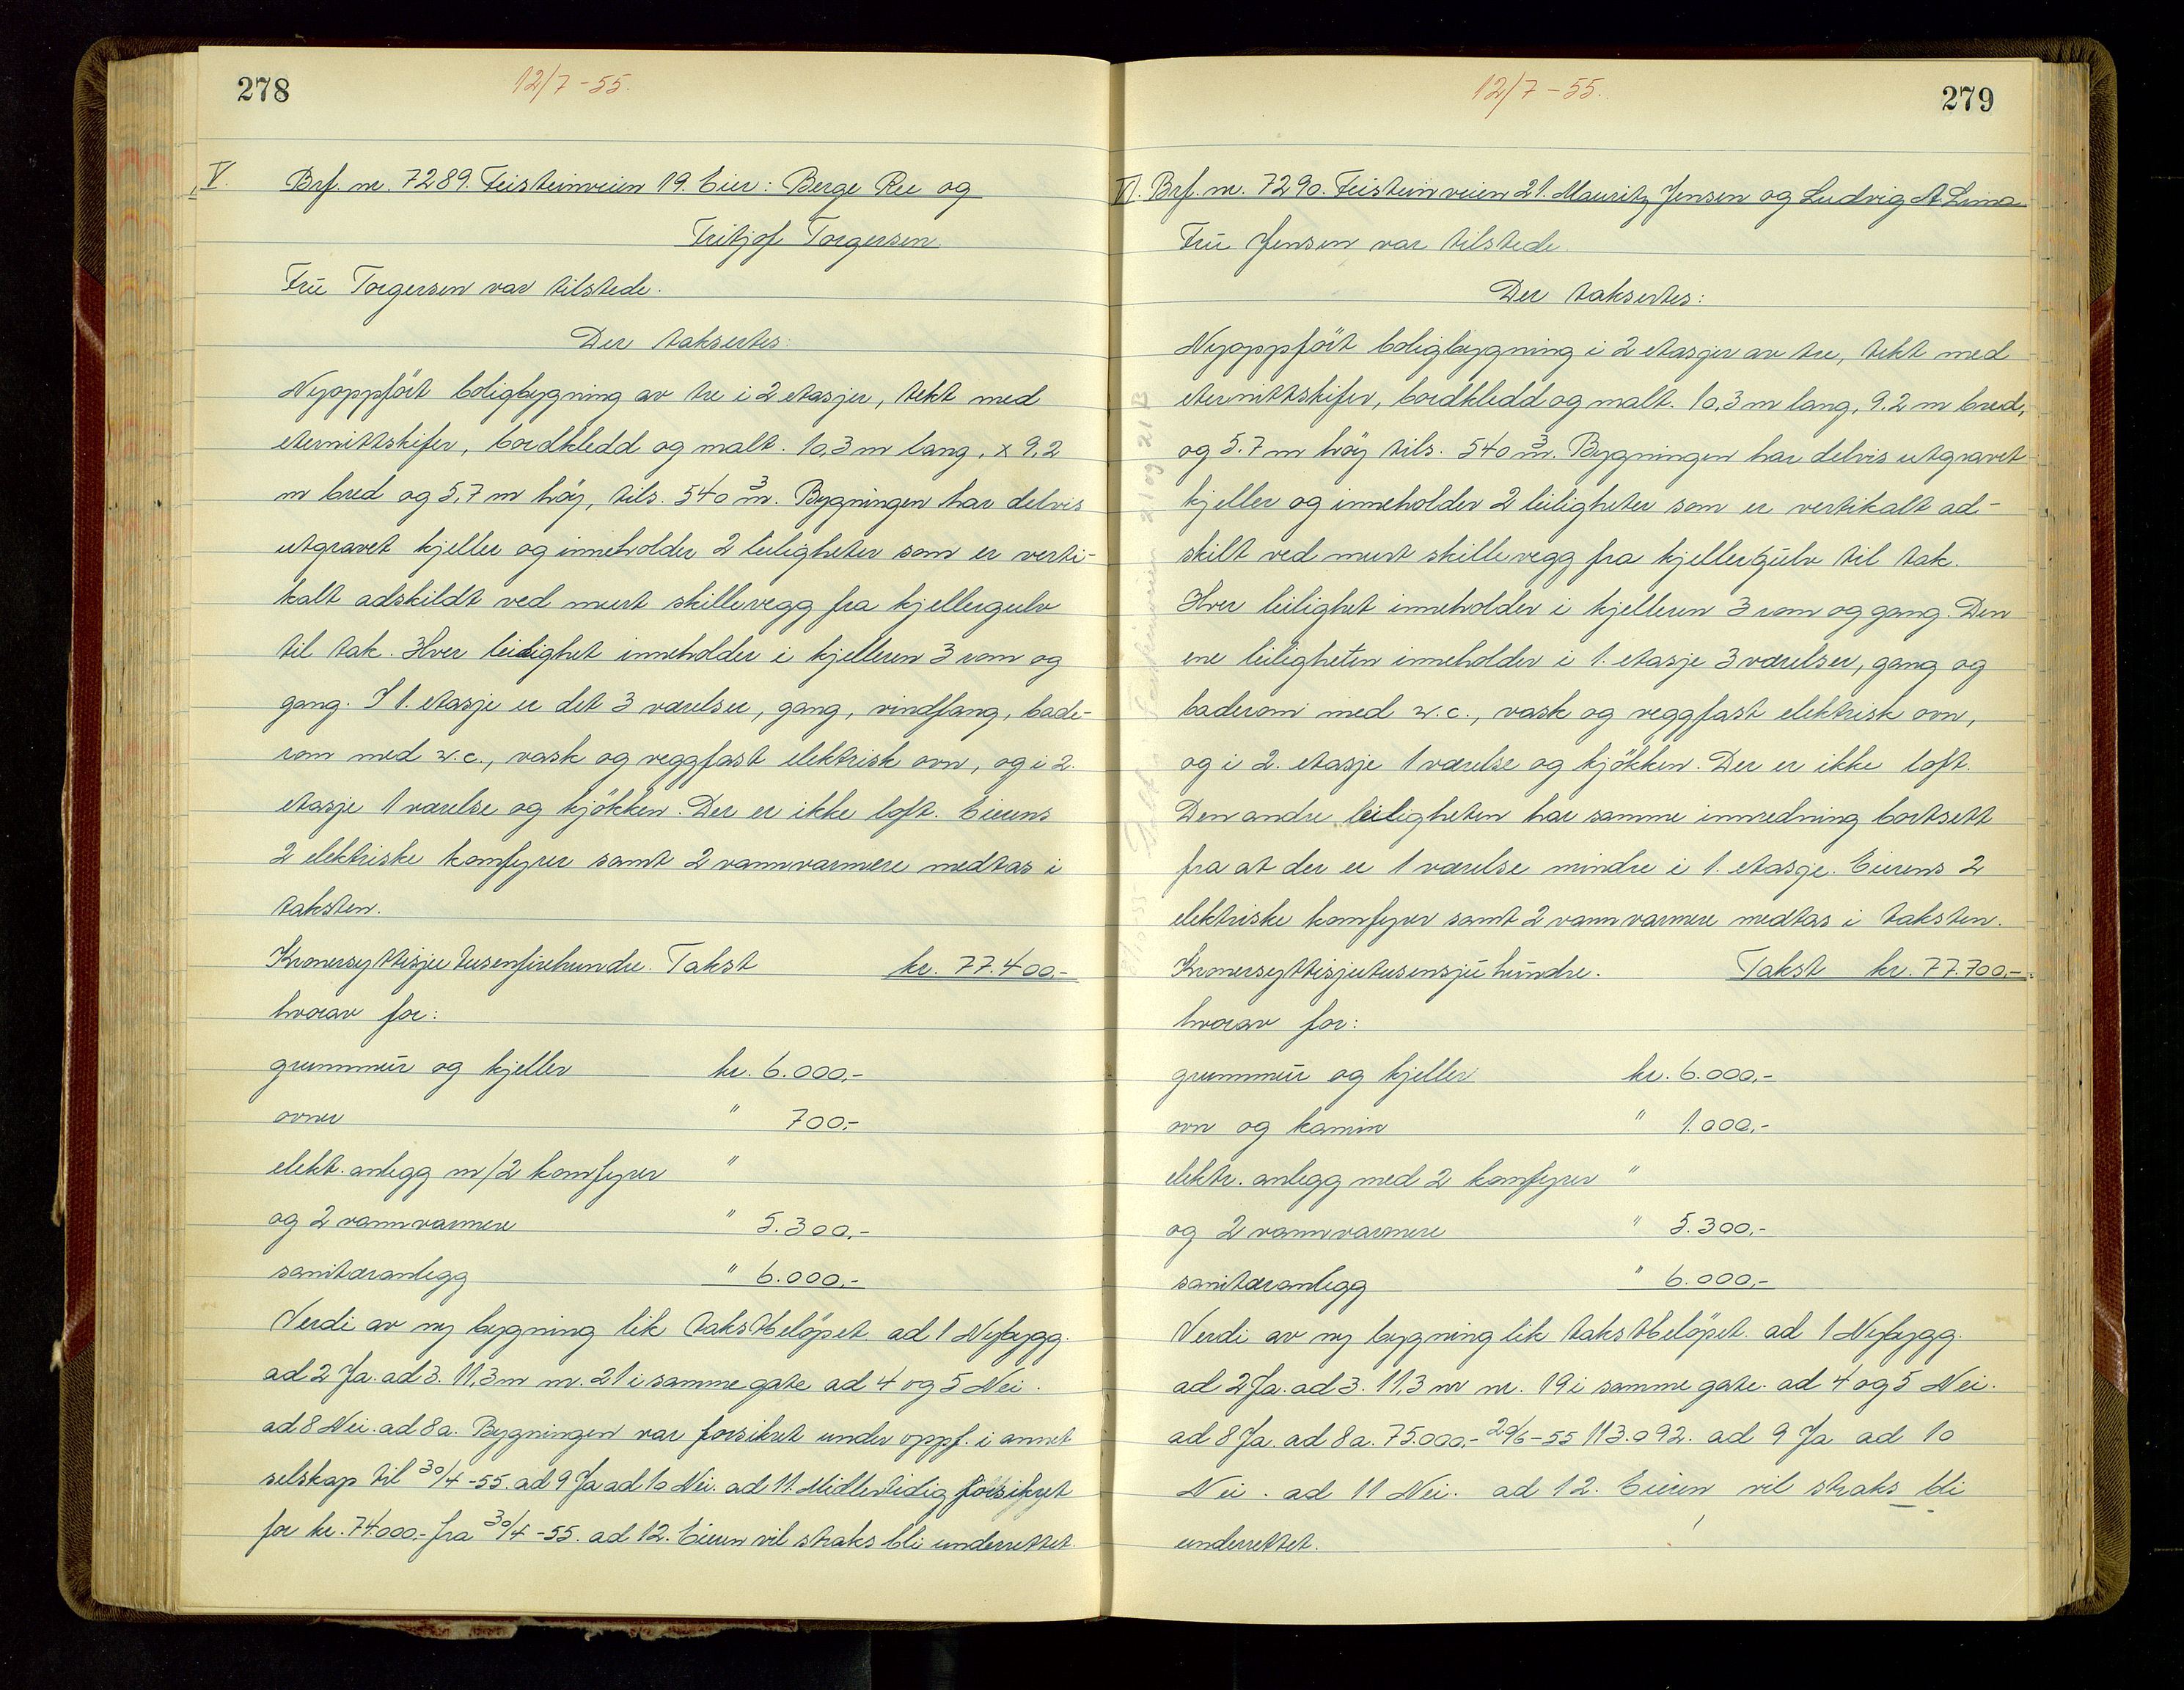 278
12/7-55.
V. Brf. nr. 7289. Feisteinveien 19. Eier: Berge Ree og
Fritjof Torgersen
Fru Torgersen var tilstede.
Der taksertes:
Nyoppfört boligbygning av tre i 2 etasjer, tekt med
eternittskifer, bordkledd og malt. 10,3 m lang, x 9,2
m bred og 5,7 m höy, tils. 540 m³. Bygningen har delvis
utgravet kjeller og inneholder 2 leiligheter som er verti-
kalt adskildt ved murt skillevegg fra kjellergulv
til tak. Hver leilighet inneholder i kjelleren 3 rom og
gang. I 1. etasje er det 3 værelser, gang, vindfang, bade-
rom med w.c., vask og veggfast elektrisk ovn, og i 2.
etasje 1 værelse og kjökken. Der er ikke loft. Eierens
2 elektriske komfyrer samt 2 vannvarmere medtas i
taksten.
Kronersyttisjutusenfirehundre. Takst kr. 77.400.-
hvorav for:
grunnmur og kjeller kr. 6.000,-
ovner " 700,-
elekt. anlegg m/2 komfyrer "
og 2 vannvarmere " 5.300,-
sanitæranlegg " 6.000,-
Verdi av ny bygning lik takstbelöpet ad 1 Nybygg.
ad 2 Ja. ad 3. 11,3 m nr. 21 i samme gate ad 4 og 5 Nei.
ad 8 Nei. ad 8a. Bygningen var forsikret under oppf. i annet
selskap til 30/4-55. ad 9 Ja ad 10 Nei. ad 11. Midlertidig forsikret
for kr. 74.000.- fra 30/4-55. ad 12. Eieren vil straks bli underrettet.
279
12/7-55.
VI. Brf. nr. 7290. Feisteinveien 21. Mauritz Jensen og Ludvig A. Lima
Fru Jensen var tilstede.
Der taksertes:
Nyoppfört boligbygning i 2 etasjer av tre, tekt med
eternittskifer, bordkledd og malt. 10,3 m lang, 9.2 m bred,
og 5.7 m höy tils. 540 m³. Bygningen har delvis utgravet
kjeller og inneholder 2 leiligheter som er vertikalt ad-
skilt ved murt skillevegg fra kjellergulv til tak.
Hver leilighet inneholder i kjelleren 3 rom og gang. Den
ene leiligheten inneholder i 1. etasje 3 værelser, gang og
baderom med w.c., vask og veggfast elektrisk ovn,
og i 2. etasje 1 værelse og kjökken. Der er ikke loft.
Den andre leiligheten har samme innredning bortsett
fra at der er 1 værelse mindre i 1. etasje. Eierens 2
elektriske komfyrer samt 2 vannvarmere medtas i taksten.
Kronersyttisjutusensjuhundre. Takst kr. 77.700.-
hvorav for:
grunnmur og kjeller kr. 6.000,-
ovn og kamin " 1.000,-
elektr. anlegg med 2 komfyrer "
og 2 vannvarmere " 5.300,-
sanitæranlegg " 6.000,-
Verdi av ny bygning lik takstbelöpet. ad 1 Nybygg.
ad 2 Ja. ad 3. 11,3 m nr. 19 i samme gate. ad 4 og 5 Nei.
ad 8 Ja. ad 8a. 75.000.- 29/6-55 113.092. ad 9 Ja ad 10
Nei. ad 11 Nei. ad 12. Eieren vil straks bli
underrettet.